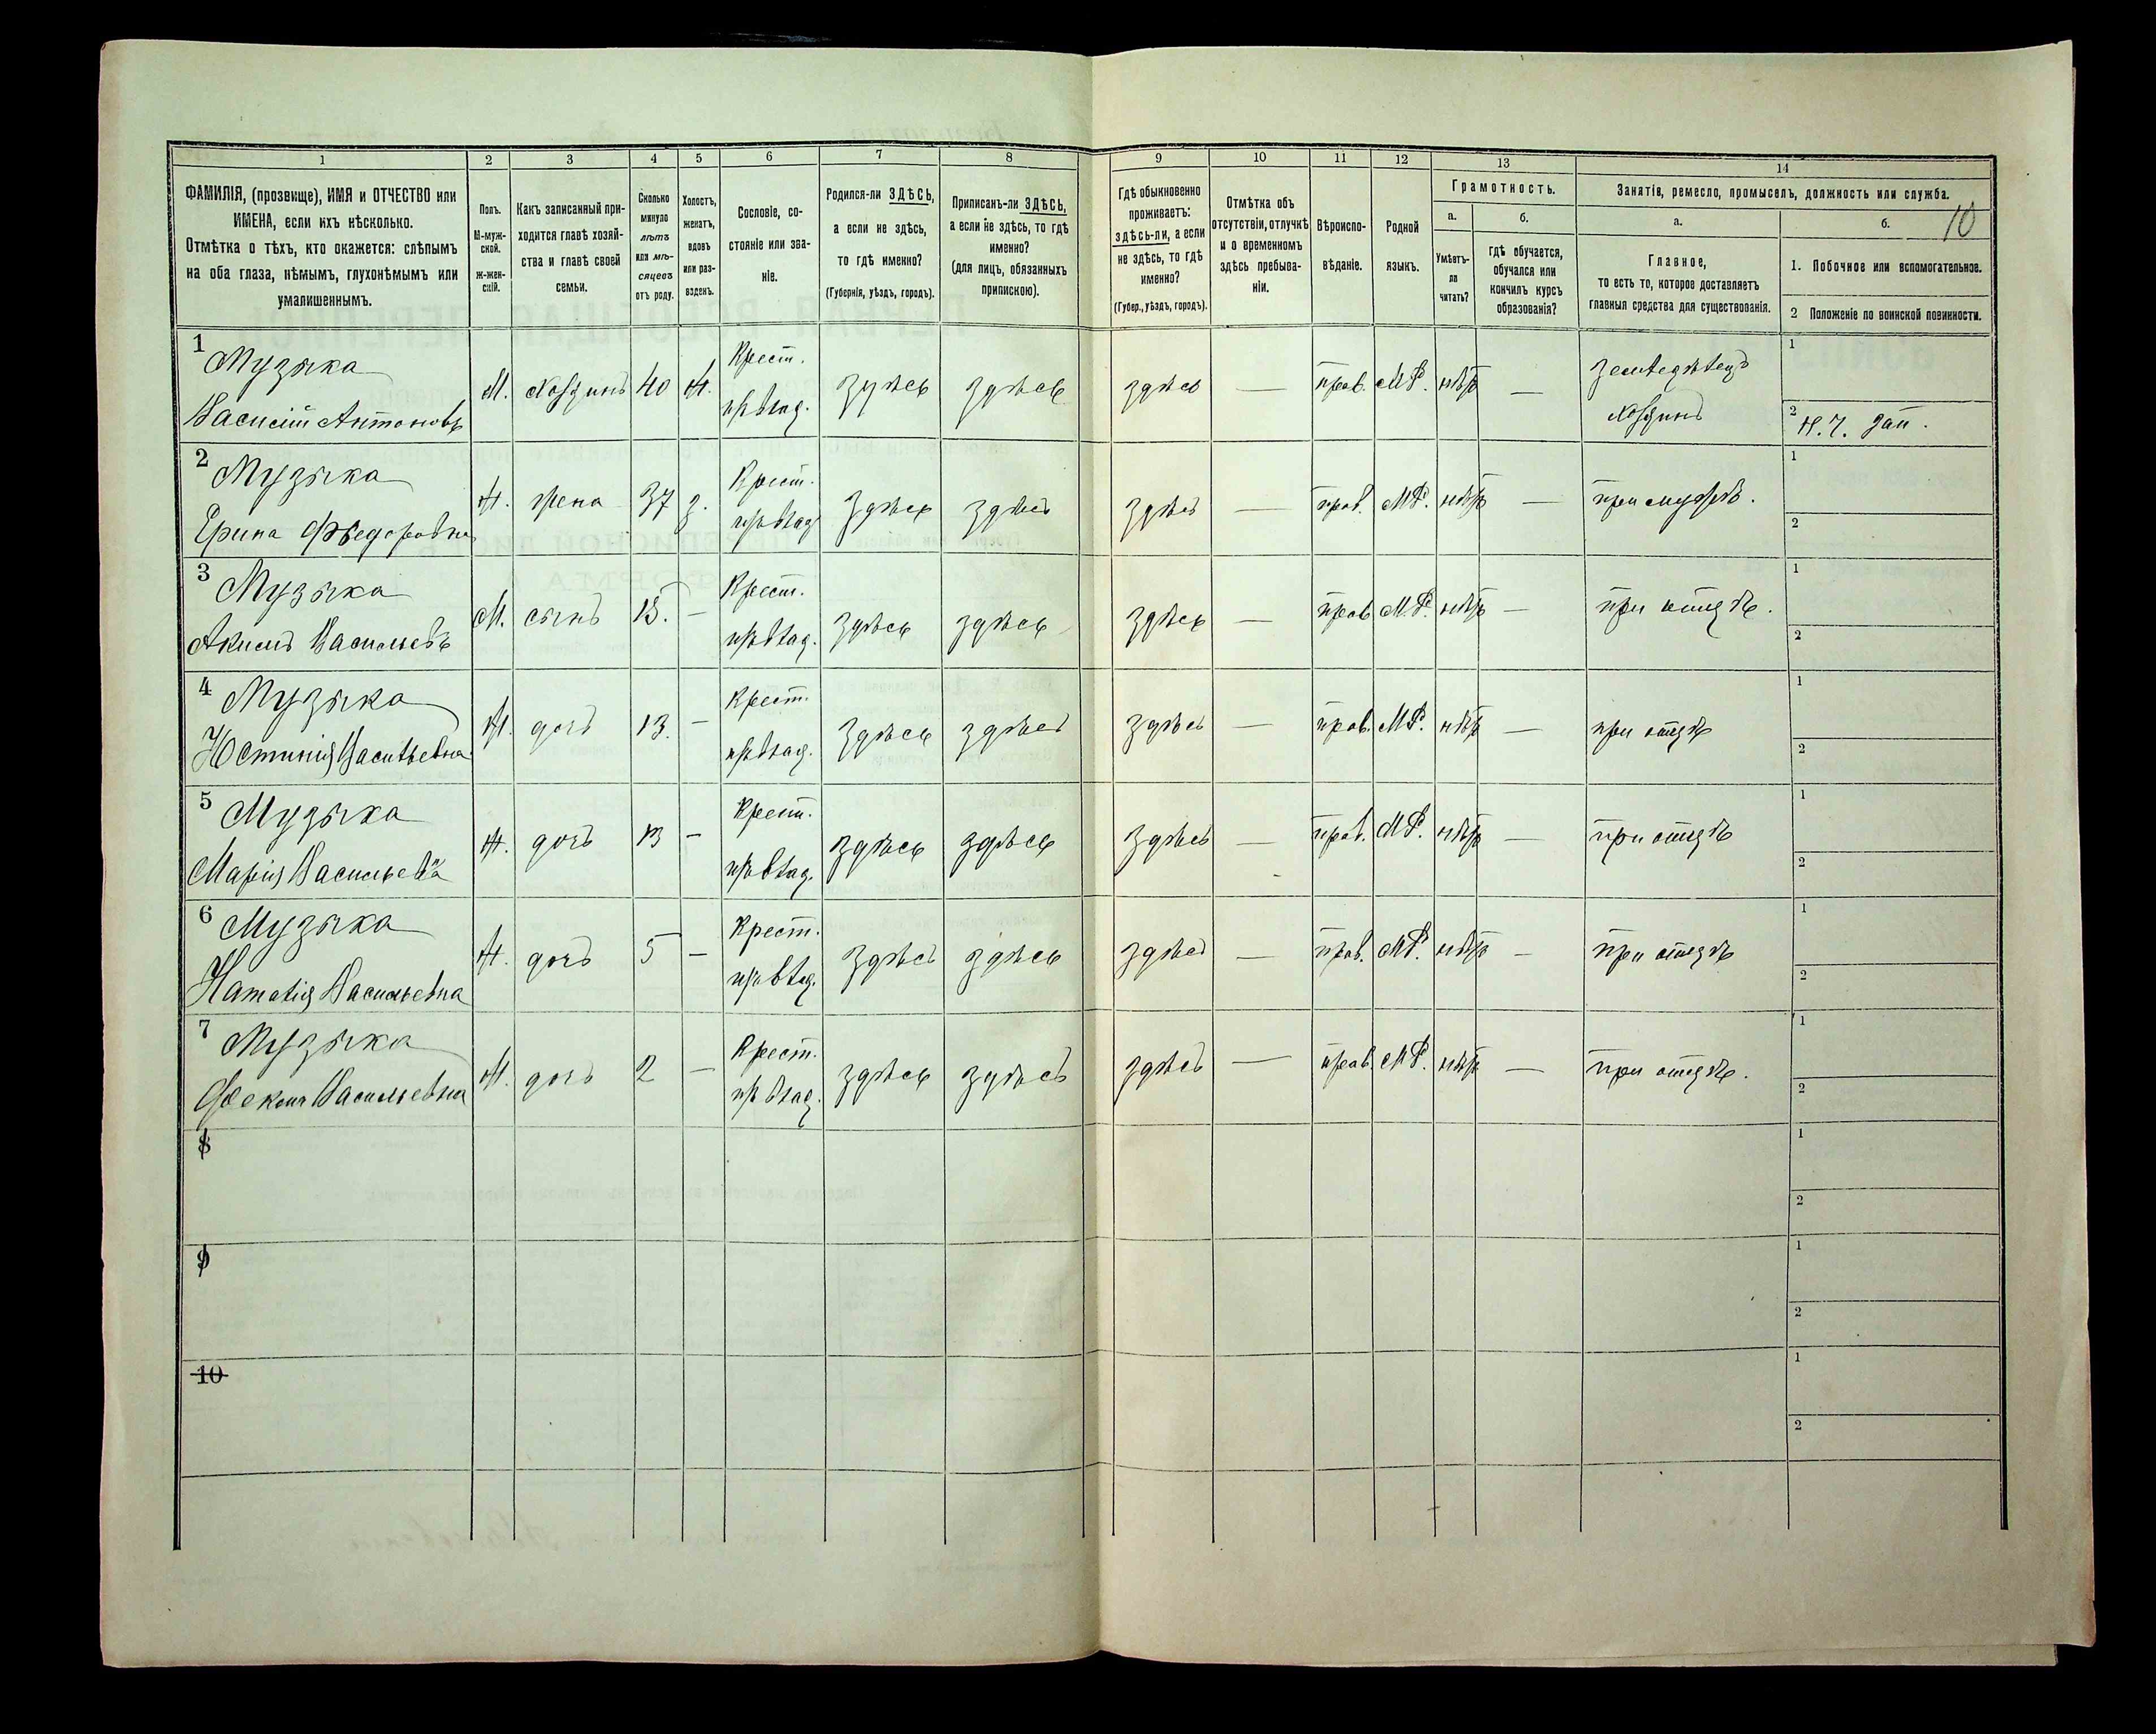 1 2 3 4 5 6 7 8 9 10 11 12 13 14
ФАМИЛІЯ, (прозвище), ИМЯ и ОТЧЕСТВО или
ИМЕНА, если ихъ нѣсколько.
Отмѣтка о тѣхъ, кто окажется: слѣпымъ
на оба глаза, нѣмымъ, глухонѣмымъ или
умалишеннымъ.
Полъ.
М-муж-
ской.
ж-жен-
скій.
Какъ записанный при-
ходится главѣ хозяй-
ства и главѣ своей
семьи.
Сколько
минуло
лѣтъ
или мѣ-
сяцевъ
отъ роду.
Холостъ,
женатъ,
вдовъ
или раз-
веденъ.
Сословіе, со-
стояніе или зва-
ніе.
Родился-ли ЗДѢСЬ,
а если не здѣсь,
то гдѣ именно?
(Губернія, уѣздъ, городъ).
Приписанъ-ли ЗДѢСЬ,
а если не здѣсь, то гдѣ
именно?
(для лицъ, обязанныхъ
припискою).
Гдѣ обыкновенно
проживаетъ:
здѣсь-ли, а если
не здѣсь, то гдѣ
именно?
(Губер., уѣздъ, городъ).
Отмѣтка объ
отсутствіи, отлучкѣ
и о временномъ
здѣсь пребыва-
ніи.
Вѣроиспо-
вѣданіе.
Родной
языкъ.
Грамотность.
а.
Умѣетъ-
ли
читать?
б.
гдѣ обучается,
обучался или
кончилъ курсъ
образованія?
Занятіе, ремесло, промыселъ, должность или служба.
а.
Главное,
то есть то, которое доставляетъ
главныя средства для существованія.
б.
10
1. Побочное или вспомогательное.
2 Положеніе по воинской повинности.
1 Музыка
Василій Антоновъ
М. хозяинъ 40 ж. Крест. здѣсь здѣсь здѣсь — прав. М.Р. нѣтъ — земледѣлецъ 1
хозяинъ 2
2 Музыка
Ерина Фѣедоровна
ж. жена 37 з. Крест. здѣсь здѣсь здѣсь — прав. М.Р. нѣтъ — при мужѣ. 1
2
3 Музыка
Акимъ Васильевъ
М. сынъ 15. — Крест. здѣсь здѣсь здѣсь — прав. М.Р. нѣтъ — при отцѣ. 1
2
4 Музыка
Юстинія Васильевна
ж. дочь 13. — Крест. здѣсь здѣсь здѣсь — прав. М.Р. нѣтъ — при отцѣ 1
2
5 Музыка
Марія Васильевна
ж. дочь 13 — Крест. здѣсь здѣсь здѣсь — прав. М.Р. нѣтъ — при отцѣ 1
2
6 Музыка
Наталія Васильевна
ж. дочь 5 — Крест. здѣсь здѣсь здѣсь — прав. М.Р. нѣтъ — при отцѣ 1
2
7 Музыка
Фекла Васильевна
ж. дочь 2 — Крест. здѣсь здѣсь здѣсь — прав. М.Р. нѣтъ — при отцѣ. 1
2
8 1
2
9 1
2
10 1
2